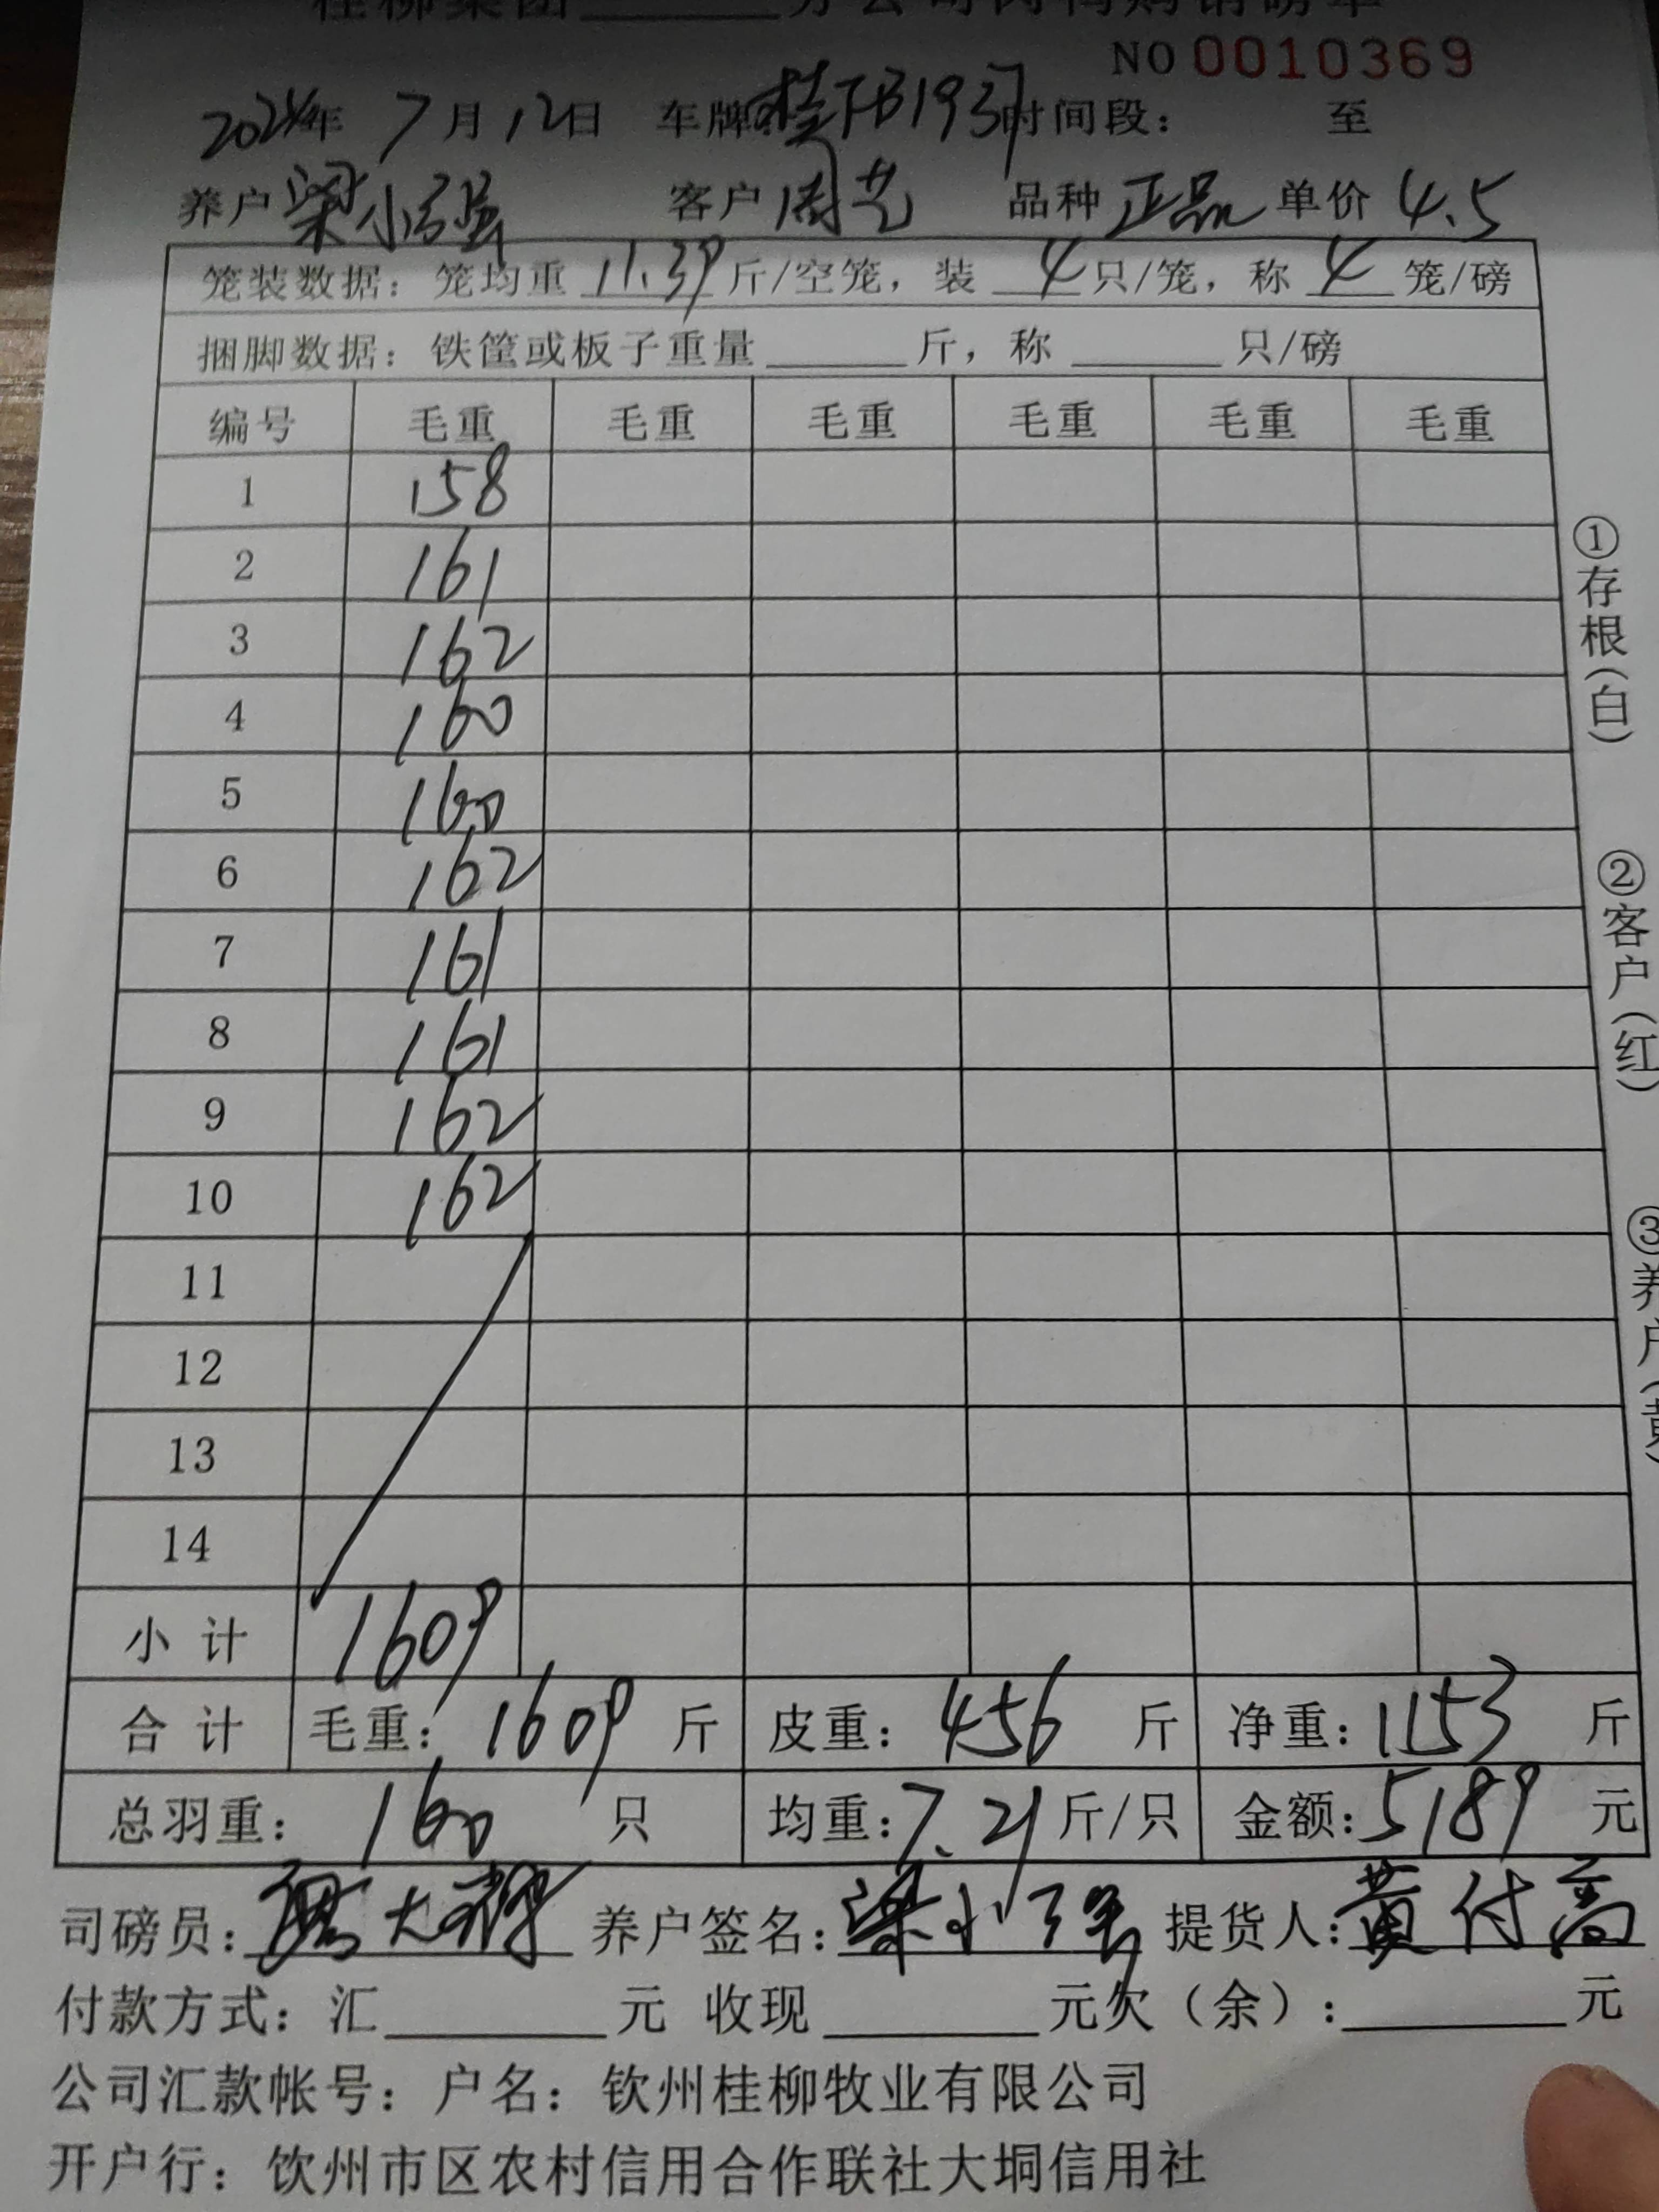 桂柳集团______分公司肉鸭购销磅单
NO 0010369
2024年 7月12日 车牌:桂FB1937 时间段: 至
养户 梁小强 客户 周艺 品种 正品 单价 4.5
笼装数据: 笼均重 11.39 斤/空笼, 装 4 只/笼, 称 4 笼/磅
捆脚数据: 铁筐或板子重量______斤, 称______只/磅
编号 毛重 毛重 毛重 毛重 毛重 毛重
1 158
2 161
3 162
4 160
5 160
6 162
7 161
8 161
9 162
10 162
11
12
13
14
小计 1609
合计 毛重: 1609 斤 皮重: 456 斤 净重: 1153 斤
总羽重: 160 只 均重: 7.21 斤/只 金额: 5189 元
司磅员: 养户签名: 梁小强 提货人: 黄付高
付款方式: 汇______元 收现______元欠(余):______元
公司汇款帐号: 户名: 钦州桂柳牧业有限公司
开户行: 钦州市区农村信用合作联社大垌信用社
①存根(白)
②客户(红)
③养户(黄)